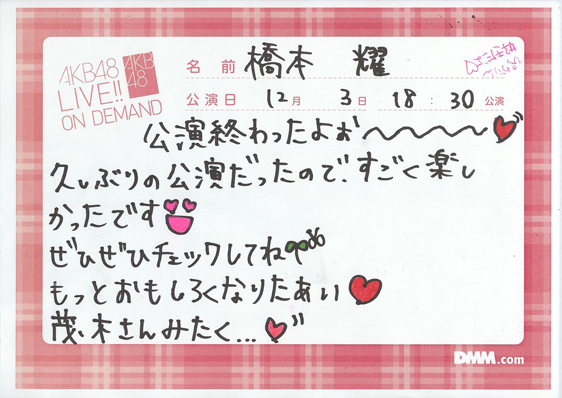 AKB48
LIVE!!
ON DEMAND
AKB
48
名前 橋本 耀
公演日 12月 3日 18:30公演
公演終わったよぉ〜〜〜〜
久しぶりの公演だったので、すごく楽し
かったです
ぜひぜひチェックしてね
もっとおもしろくなりたぁい
茂木さんみたく...
DMM.com